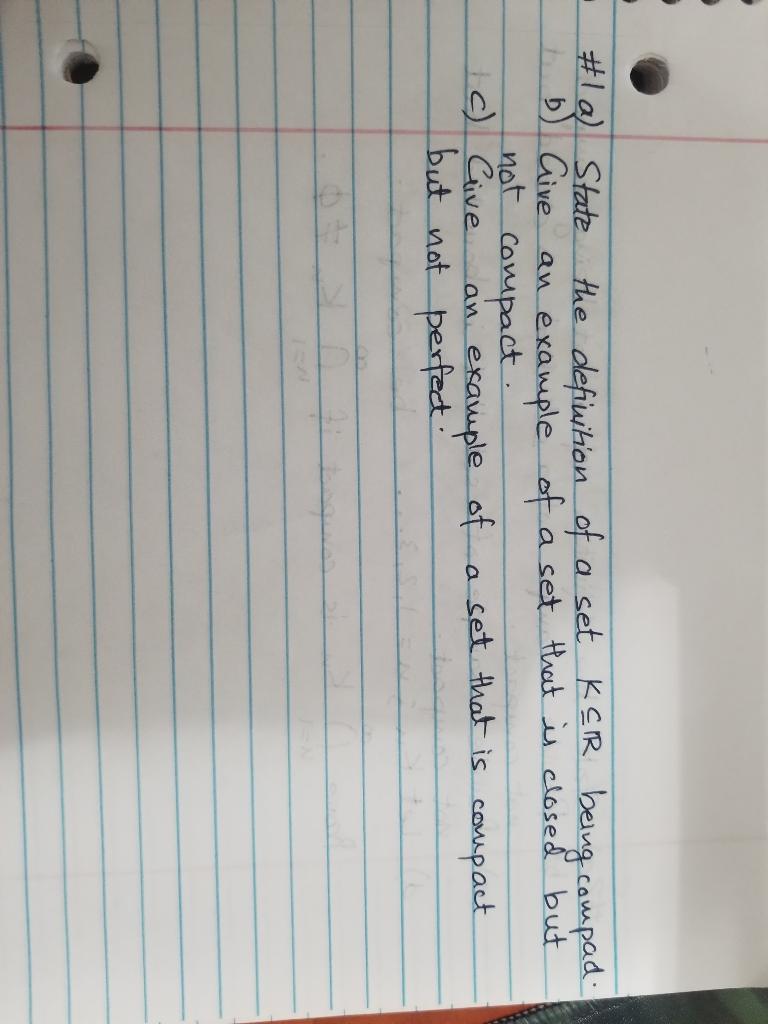 #1 a) State the definition of a set K ⊆ ℝ being compact.
b) Give an example of a set that is closed but
not compact.
c) Give an example of a set that is compact
but not perfect.